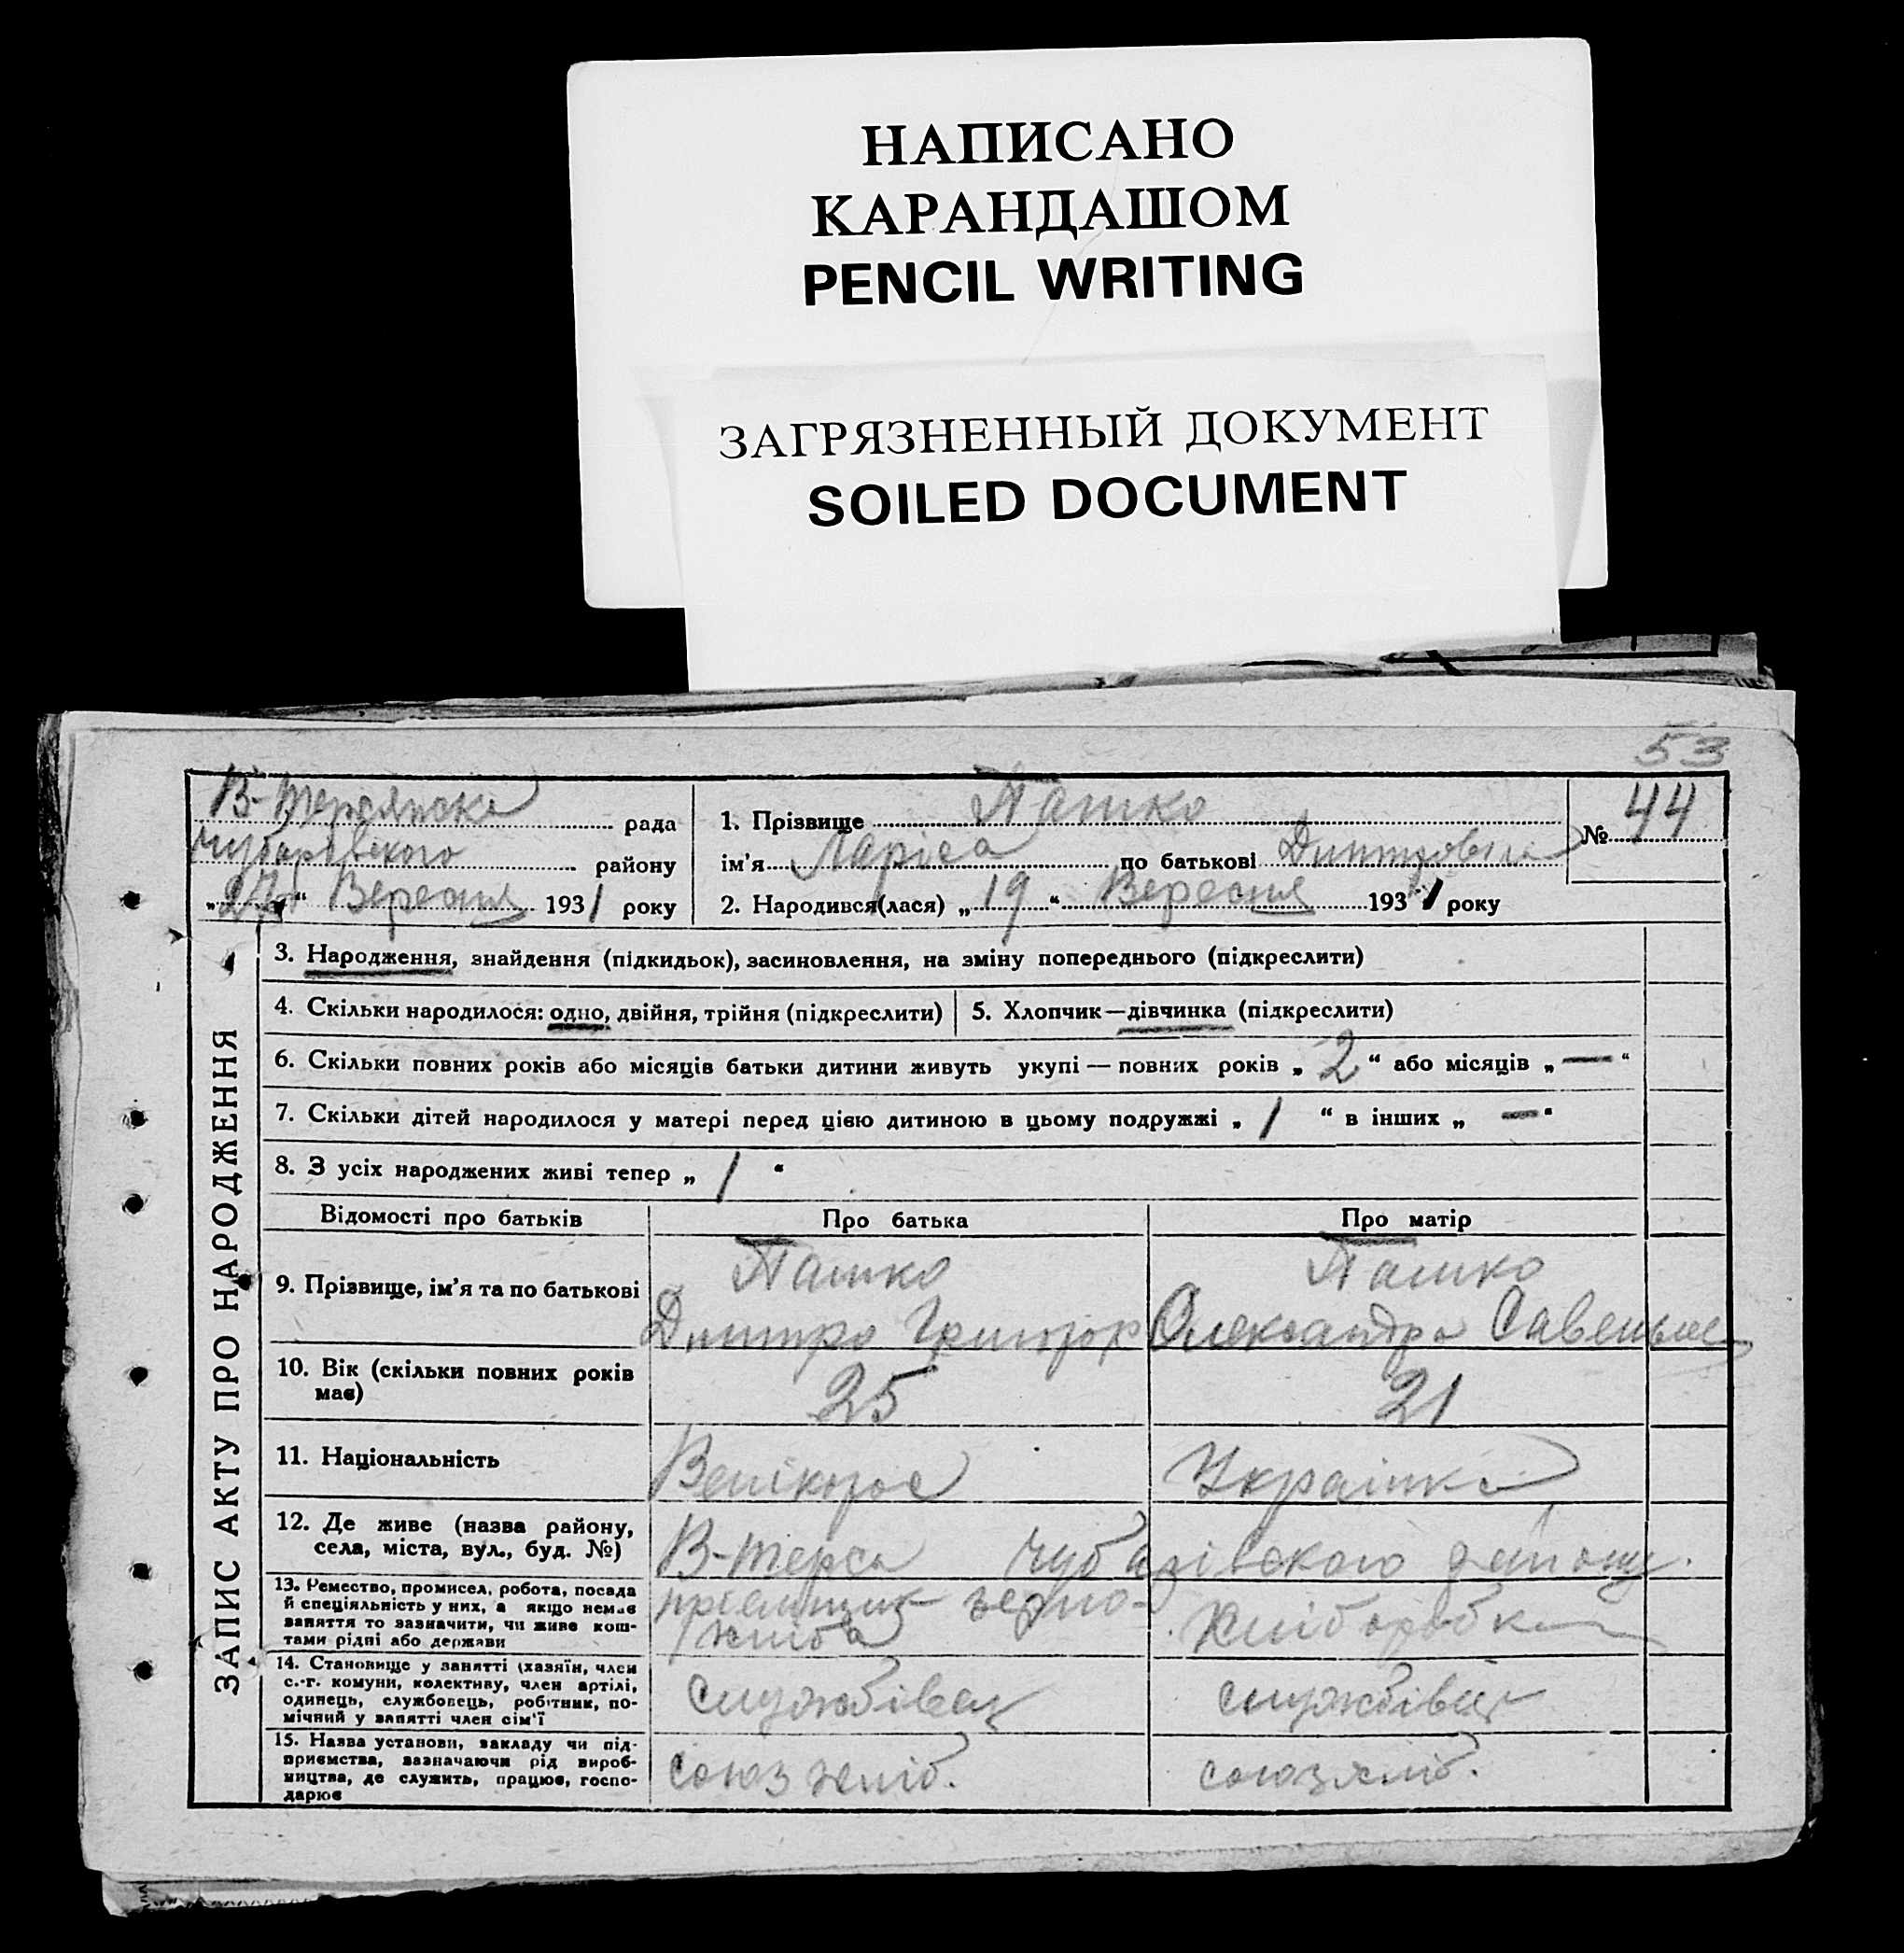 НАПИСАНО
КАРАНДАШОМ
PENCIL WRITING
ЗАГРЯЗНЕННЫЙ ДОКУМЕНТ
SOILED DOCUMENT
53
В-Терсянска рада
Чубарівского району
„27“ Вересня 1931 року
1. Прізвище Пашко
ім’я Ларіса по батькові Дмитровна
2. Народився(лася) „19“ Вересня 1931 року
№ 44
ЗАПИС АКТУ ПРО НАРОДЖЕННЯ
3. Народження, знайдення (підкидьок), засиновлення, на зміну попереднього (підкреслити)
4. Скільки народилося: одно, двійня, трійня (підкреслити)
5. Хлопчик—дівчинка (підкреслити)
6. Скільки повних років або місяців батьки дитини живуть укупі — повних років „2“ або місяців „—“
7. Скільки дітей народилося у матері перед цією дитиною в цьому подружжі „1“ в інших „—“
8. З усіх народжених живі тепер „1“
Відомості про батьків Про батька Про матір
9. Прізвище, ім’я та по батькові
Пашко
Дмитро Григор
Пашко
Олександра
10. Вік (скільки повних років
має)
25
21
11. Національність
Велікорос
Українка
12. Де живе (назва району,
села, міста, вул., буд. №)
В-Терса Чубарівского району.
13. Ремество, промисел, робота, посада
й спеціяльність у них, а якщо немає
заняття то зазначити, чи живе кош-
тами рідні або держави
приемщик зерно-
хліба
Хліборобка
14. Становище у занятті (хазяїн, член
с.-г. комуни, колективу, член артілі,
одинець, службовець, робітник, по-
мічний у занятті член сім’ї
службівец
службівец
15. Назва установи, закладу чи під-
приємства, зазначаючи рід вироб-
ництва, де служить, працює, госпо-
дарює
союзхліб.
союзхліб.